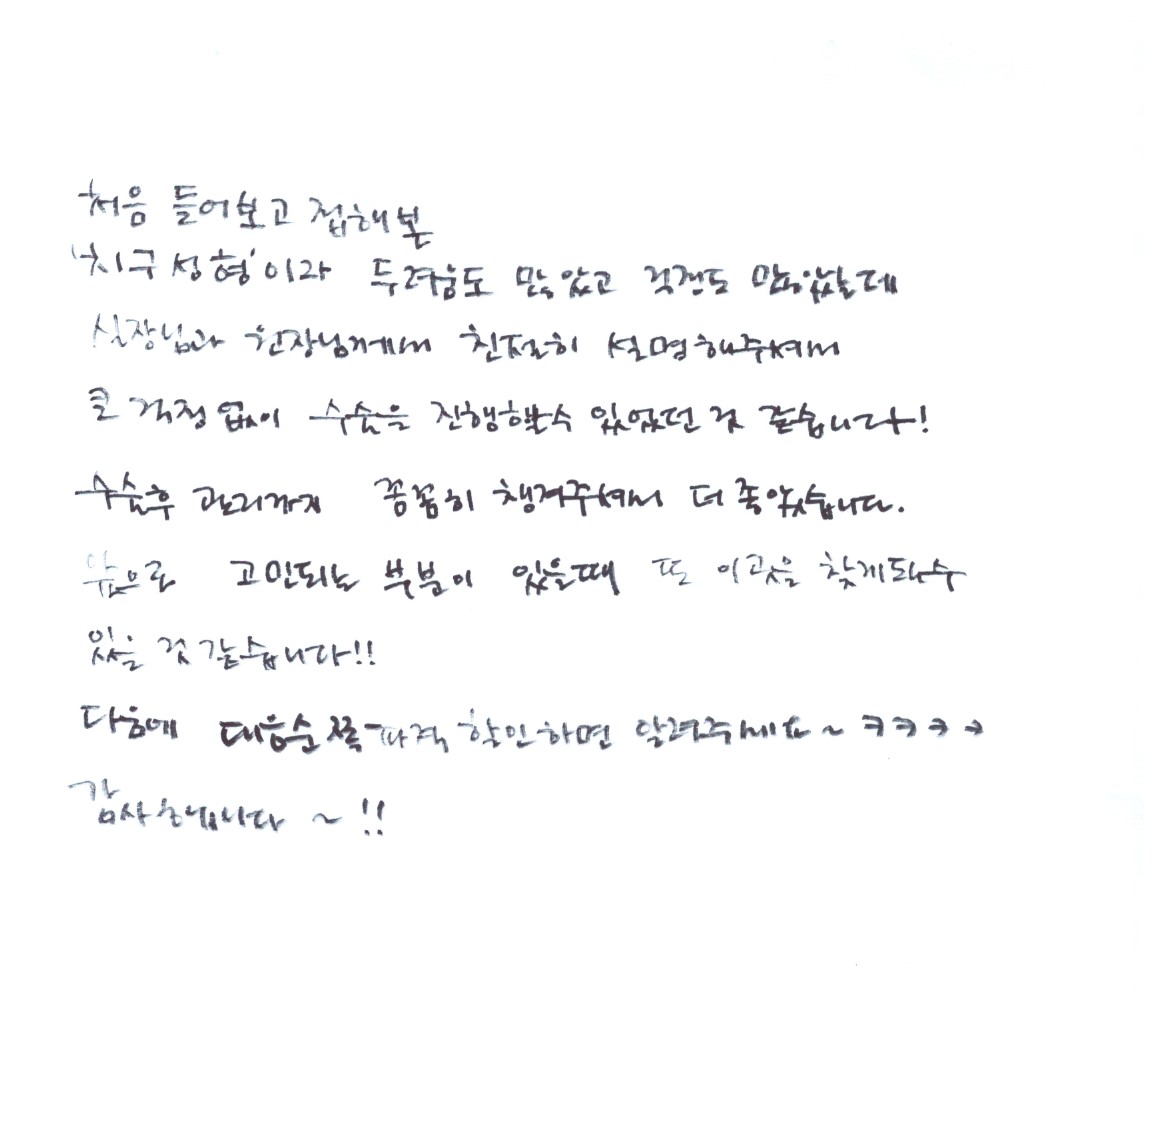 처음 들어보고 접해본
'치구성형'이라 두려움도 많았고 걱정도 많았는데
실장님과 원장님께서 친절히 설명해주셔서
큰 걱정 없이 수술을 진행할수 있었던 것 같습니다!
수술후 관리까지 꼼꼼히 챙겨주셔서 더 좋았습니다.
앞으로 고민되는 부분이 있을때 또 이곳을 찾게될수
있을 것 같습니다!!
다음에 대음순쪽 파격 할인하면 알려주세요~ ㅋㅋㅋㅋ
감사합니다 ~ !!